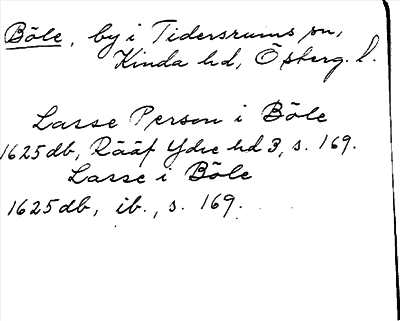 Böle, by i Tidersrums sn,
Kinda hd, Österg. l.
Lasse Person i Böle
1625 db, Rääf Ydre hd 3, s. 169.
Lasse i Böle
1625 db, ib., s. 169.